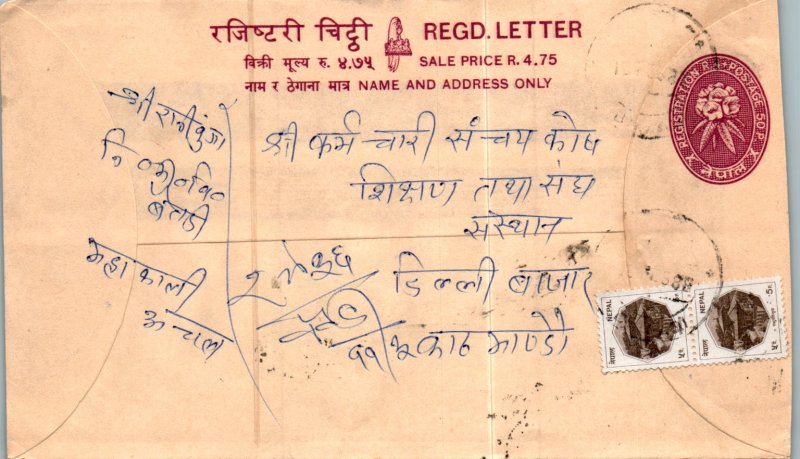 रजिष्टरी चिट्ठी REGD. LETTER
बिक्री मूल्य रु. ४.७५ SALE PRICE R. 4.75
नाम र ठेगाना मात्र NAME AND ADDRESS ONLY
REGISTRATION R. 4 POSTAGE 50 P.
नेपाल
श्री
बैतडी
महाकाली
अन्चल
श्री कर्मचारी संचय कोष
शिक्षण तथा संघ
संस्थान
डिल्ली बाजार
काठमाण्डौ
NEPAL
नेपाल ५रु
NEPAL 5R
नेपाल ५रु